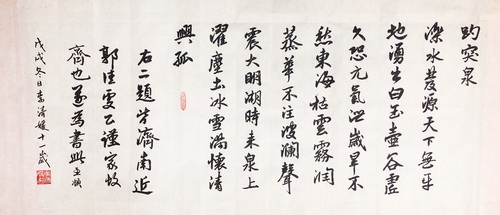 趵突泉
濼水發源天下無平
地湧出白玉壺谷虛
久恐元氣泄歲旱不
愁東海枯雲霧潤
蒸華不注波瀾聲
震大明湖時来泉上
濯塵土冰雪滿懷清
興孤
右二題皆濟南近
郭佳雯乙謹家故
齊也遂為書此
戊戌冬日李清媛十一歲